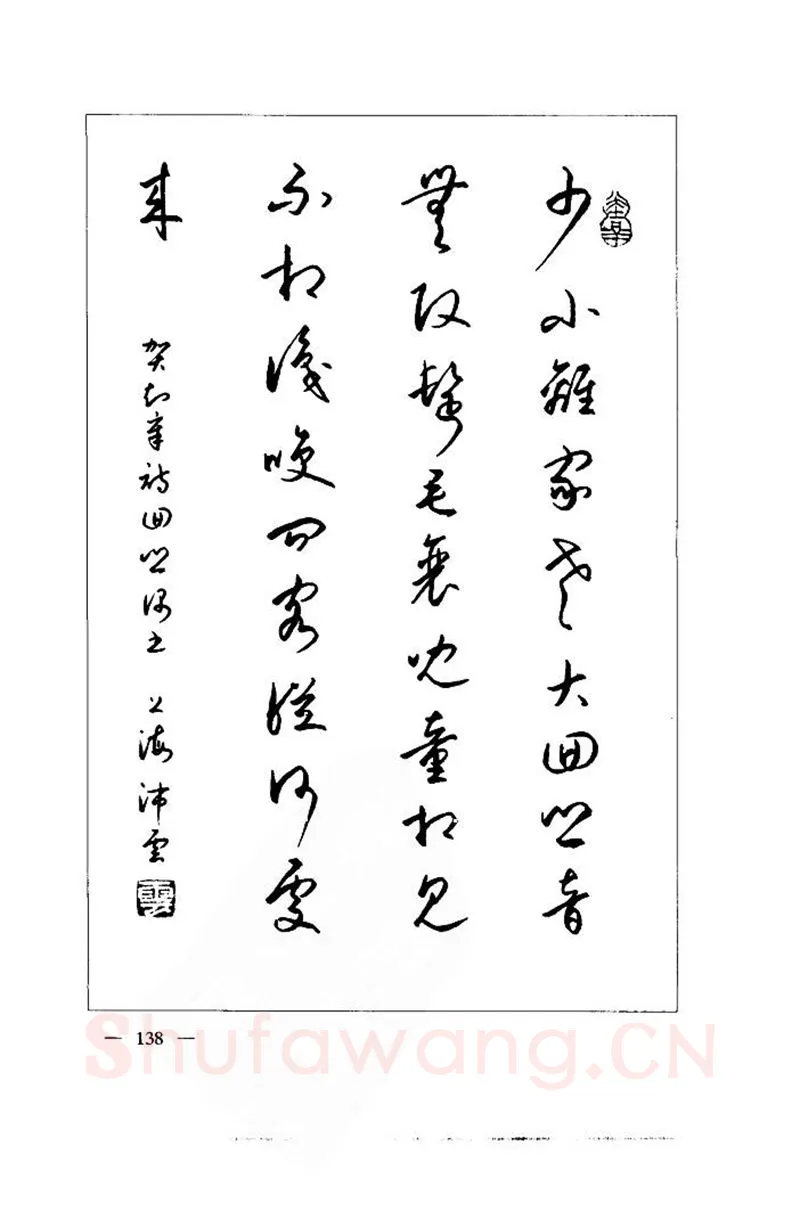 少小離家老大囬鄉音
無改鬢毛衰兒童相見
不相識咲問客從何處
來
賀知章詩囬鄉偶書 上海沛雲
雲
— 138 —
Shufawang.CN